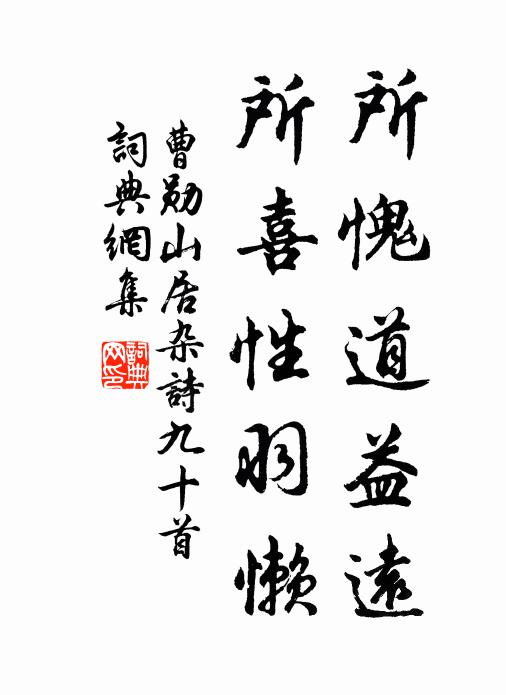 所愧道益遠
所喜性明懶
曹勛山居杂詩九十首
詞典網集
詞典網印